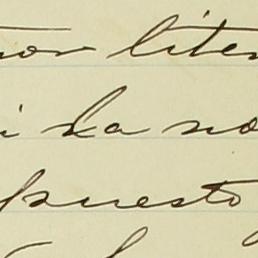 nor liter
i la no
puesto